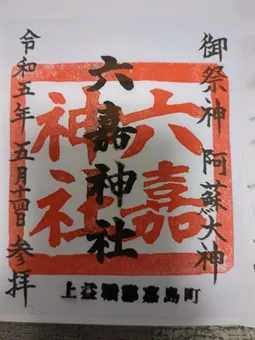 御祭神 阿蘇大神
六嘉神社
六嘉神社
令和五年五月十四日参拝
上益城郡嘉島町